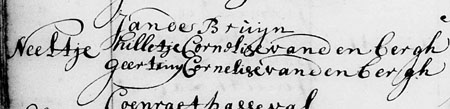 Jan de Bruijn
Neeltje Hilletje Cornelisse van den bergh
Geertruy Cornelisse van den bergh
Coenraet hasseval